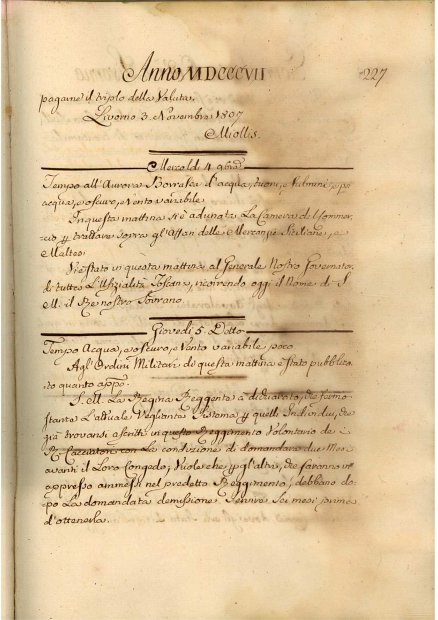 Anno MDCCCVII
227
pagarne il triplo della Valuta.
Livorno 3. Novembre 1807
Miollis.
Mercoldì 4 9bre
Tempo all'Aurora Borrasca d'acqua, tuoni, e fulmini, e poi
acqua, e oscuro, e Vento variabile
In questa mattina si è adunata La Camera di Commer-
cio p trattare sopra gl'Affari delle Mercanzie Siciliane, e
Maltesi
Si è stato in questa mattina al Generale Nostro Governator,
da tutta L'Ufizialità Toscana, ricorrendo oggi il Nome di S.
M. il Re nostro Sovrano
Giovedì 5. Detto
Tempo Acqua, e oscuro, e Vento variabile poco
Agl'Ordini Militari di questa mattina è stato pubblica-
to quanto appo.
S. M. La Regina Reggente à dichiarato, che fermo
stante L'attuale Vegliante Sistema p quelli Individui, che
già trovansi ascritti in questo Reggimento Volontario de
R. Cacciatori con La condizione di domandare due Mesi
avanti il Loro Congedo, Vuole che p gl'altri, che saranno in
appresso ammessi nel predetto Reggimento, debbano do-
po La domandata demissione Servire Sei mesi prima
d'ottenerla.